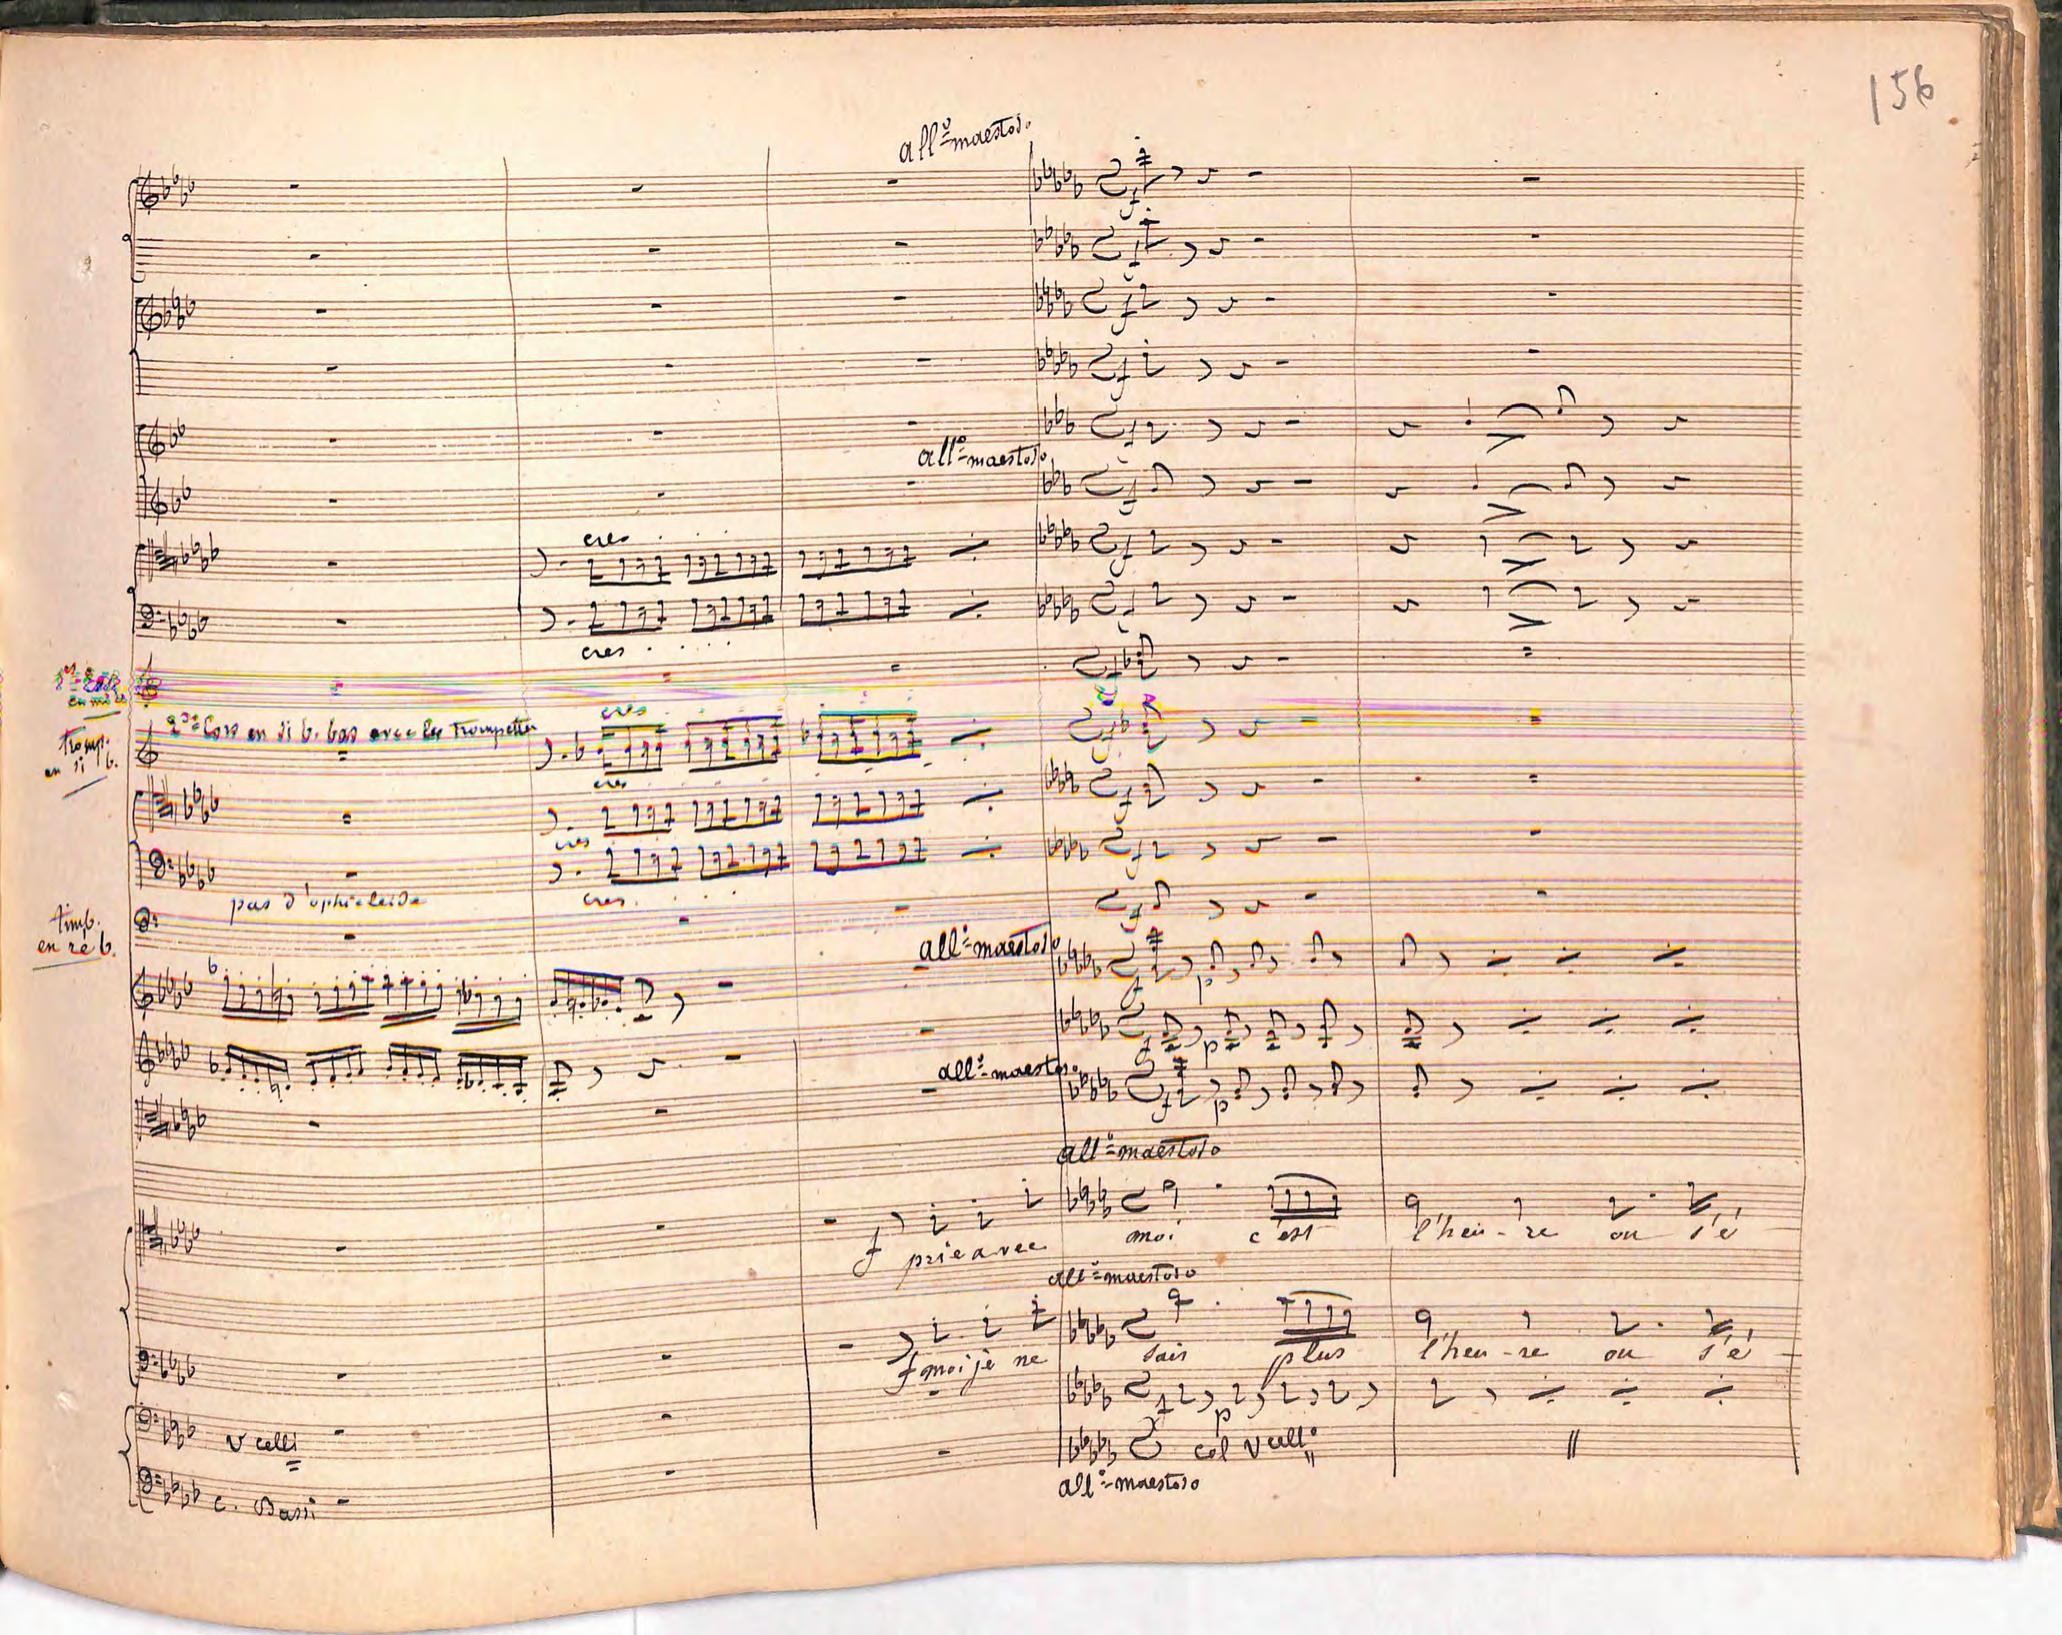 156
all.º maestoso.
all.º maestoso
cres
cres
en mi b
2.ds Cors en si b. bas avec les Trompettes
cres
Tromp.
en si b.
cres
cres
pas d'ophicleide
cres
timb.
en re b.
all.º maestoso
f
p
f
p
all.º maestoso.
f
p
all.º maestoso
f prie avec moi c'est l'heu-re ou s'é
all.º maestoso
f moi je ne sais plus l'heu-re ou s'é
f
p
v celli
col vcell.º
c. Bassi
all.º maestoso